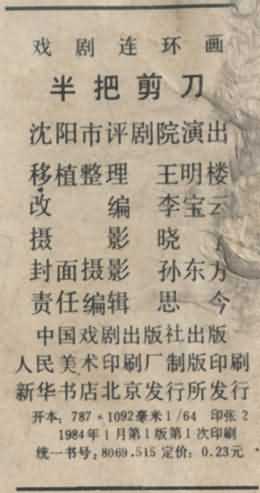 戏剧连环画
半把剪刀
沈阳市评剧院演出
移植整理 王明楼
改编 李宝云
摄影 晓
封面摄影 孙东方
责任编辑 思今
中国戏剧出版社出版
人民美术印刷厂制版印刷
新华书店北京发行所发行
开本:787×1092毫米1/64 印张2
1984年1月第1版第1次印刷
统一书号:8069.515 定价:0.23元